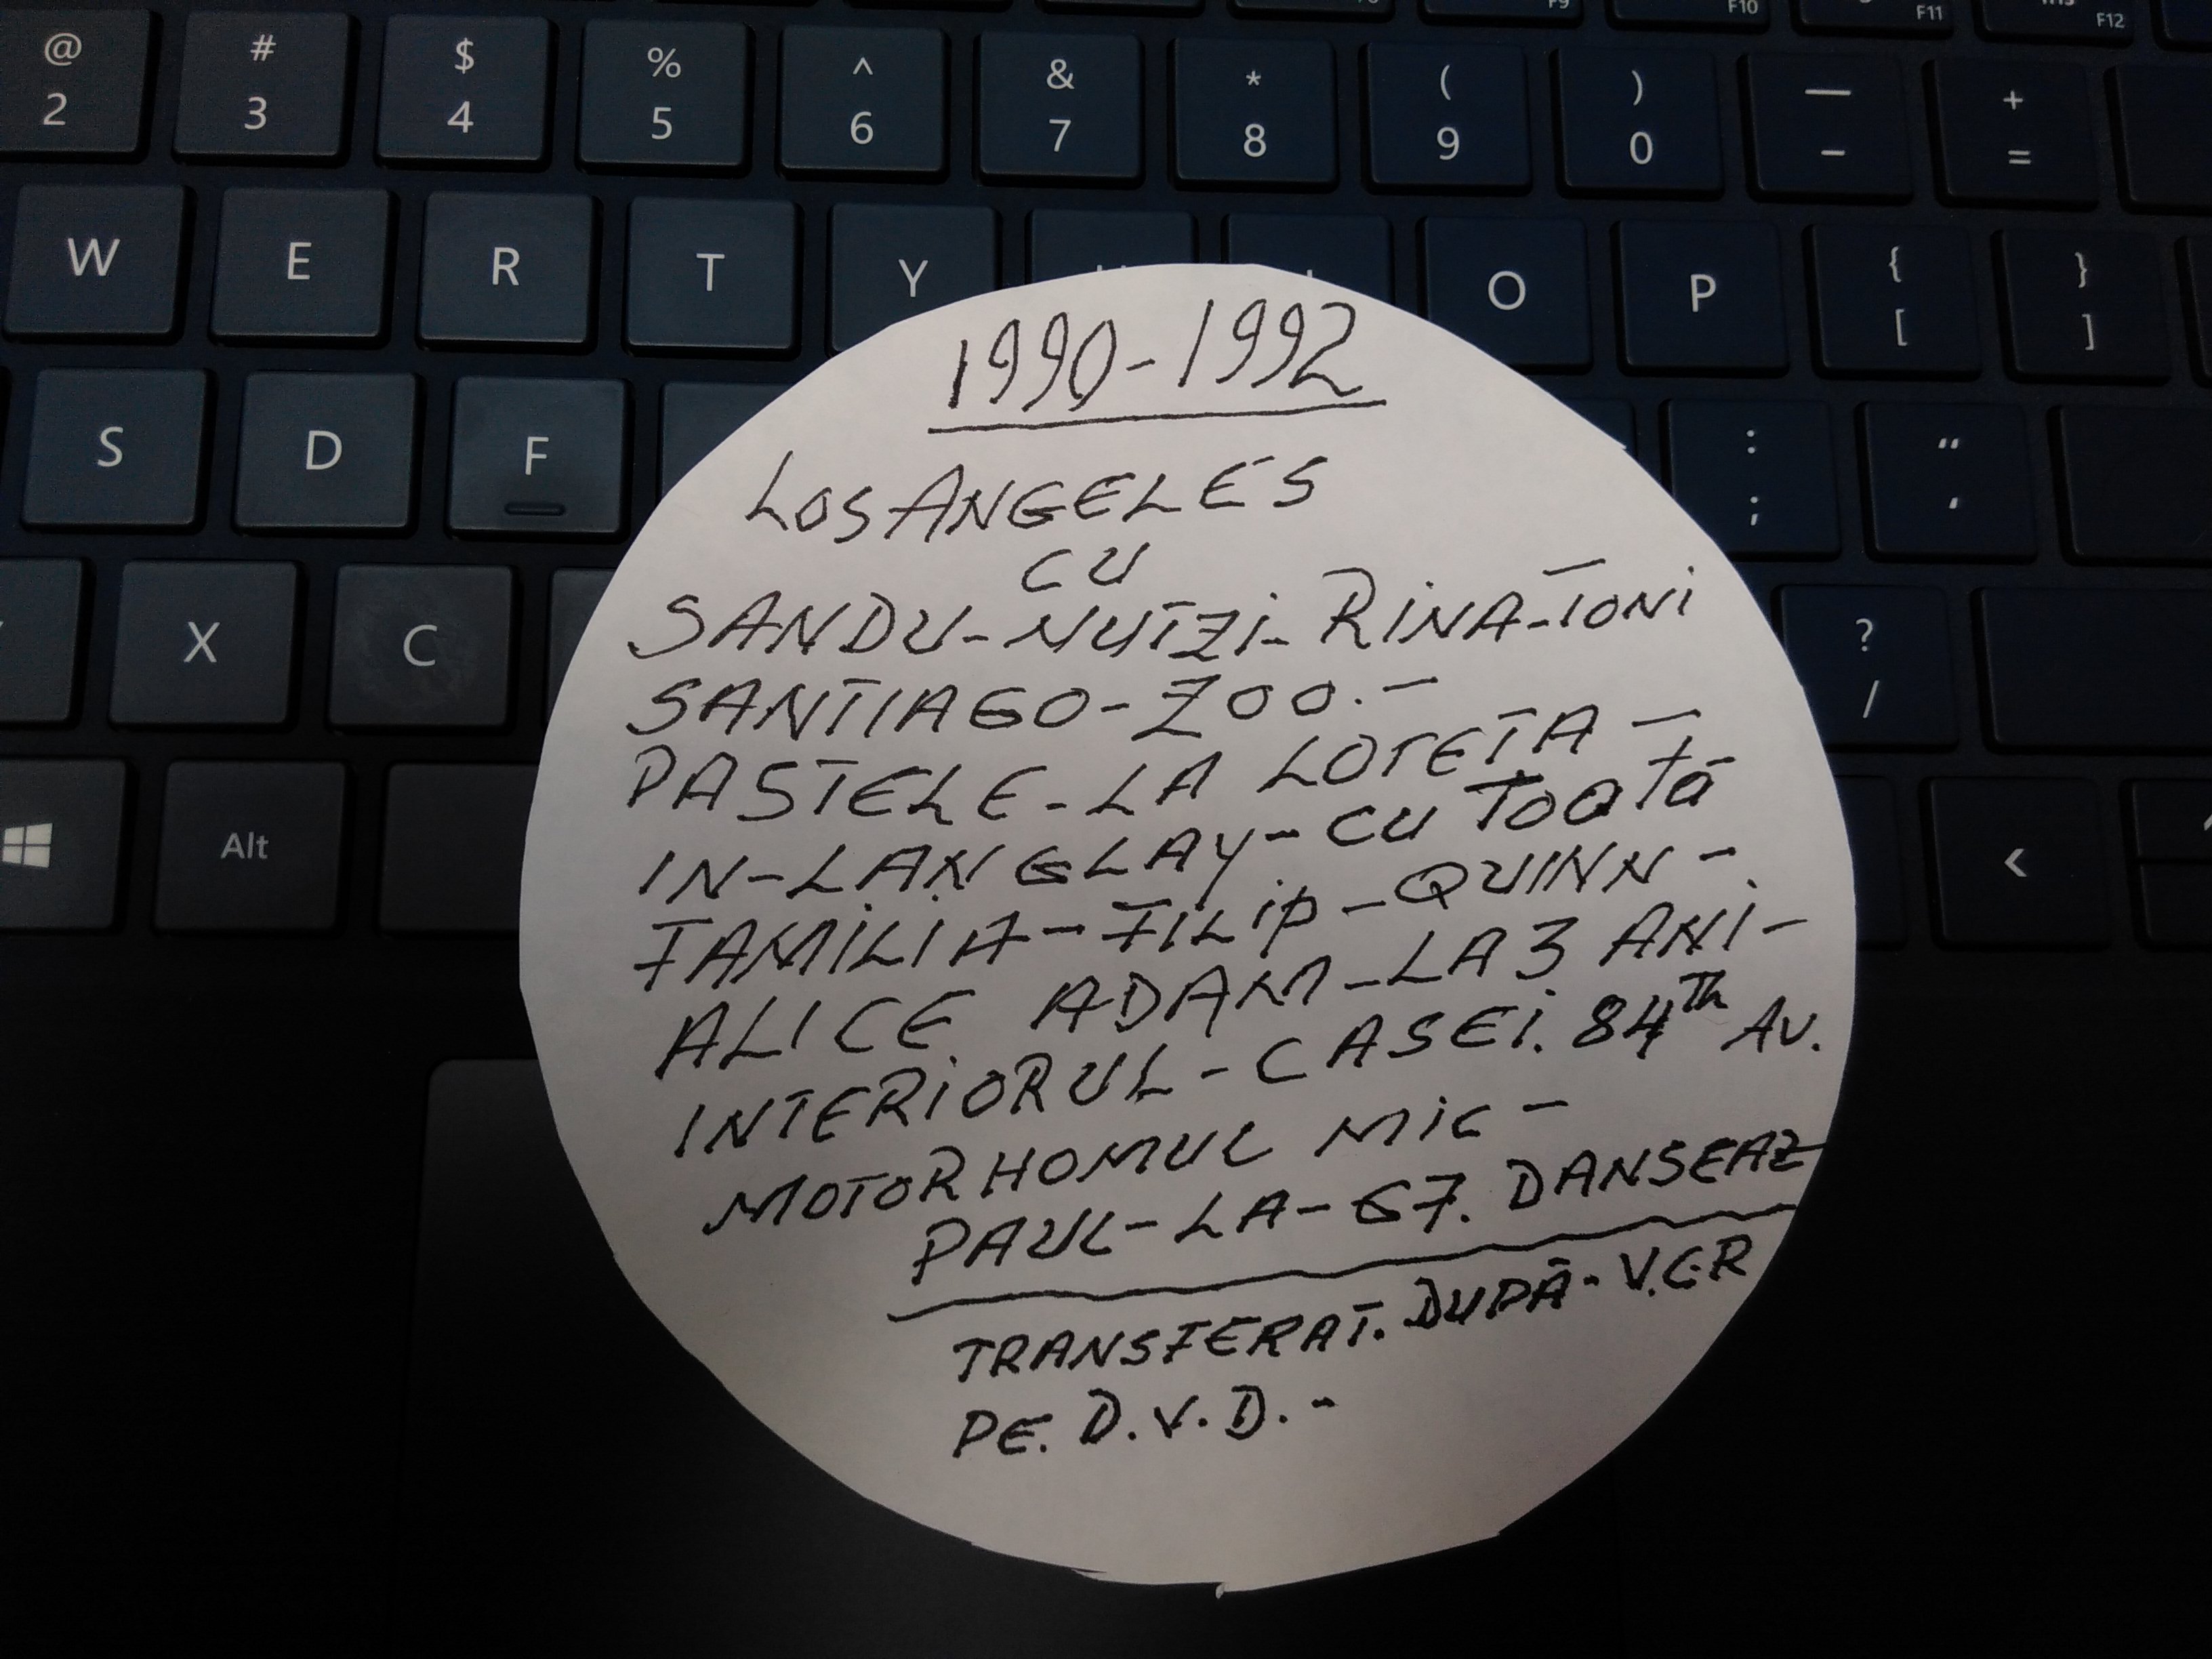 F9 F10 F11 F12
@ # $ % ^ & * ( ) — +
2 3 4 5 6 7 8 9 0 - =
W E R T Y O P { }
[ ]
S D F : “
; ‘
X C ?
/
Alt <
1990-1992
LOS ANGELES
CU
SANDU-NUTZI-RINA-TONI
SANTIAGO-ZOO.-
PASTELE-LA LOTETA-
IN-LANGLAY-CU TOATĂ
FAMILIA-FILIP-QUINN-.
ALICE ADAM-LA 3 ANI-
INTERIORUL-CASEI. 84TH AV.
MOTORHOMUL MIC-
PAUL-LA-67. DANSEAZ
TRANSFERAT. DUPĂ-V.C.R
PE. D.V.D.-